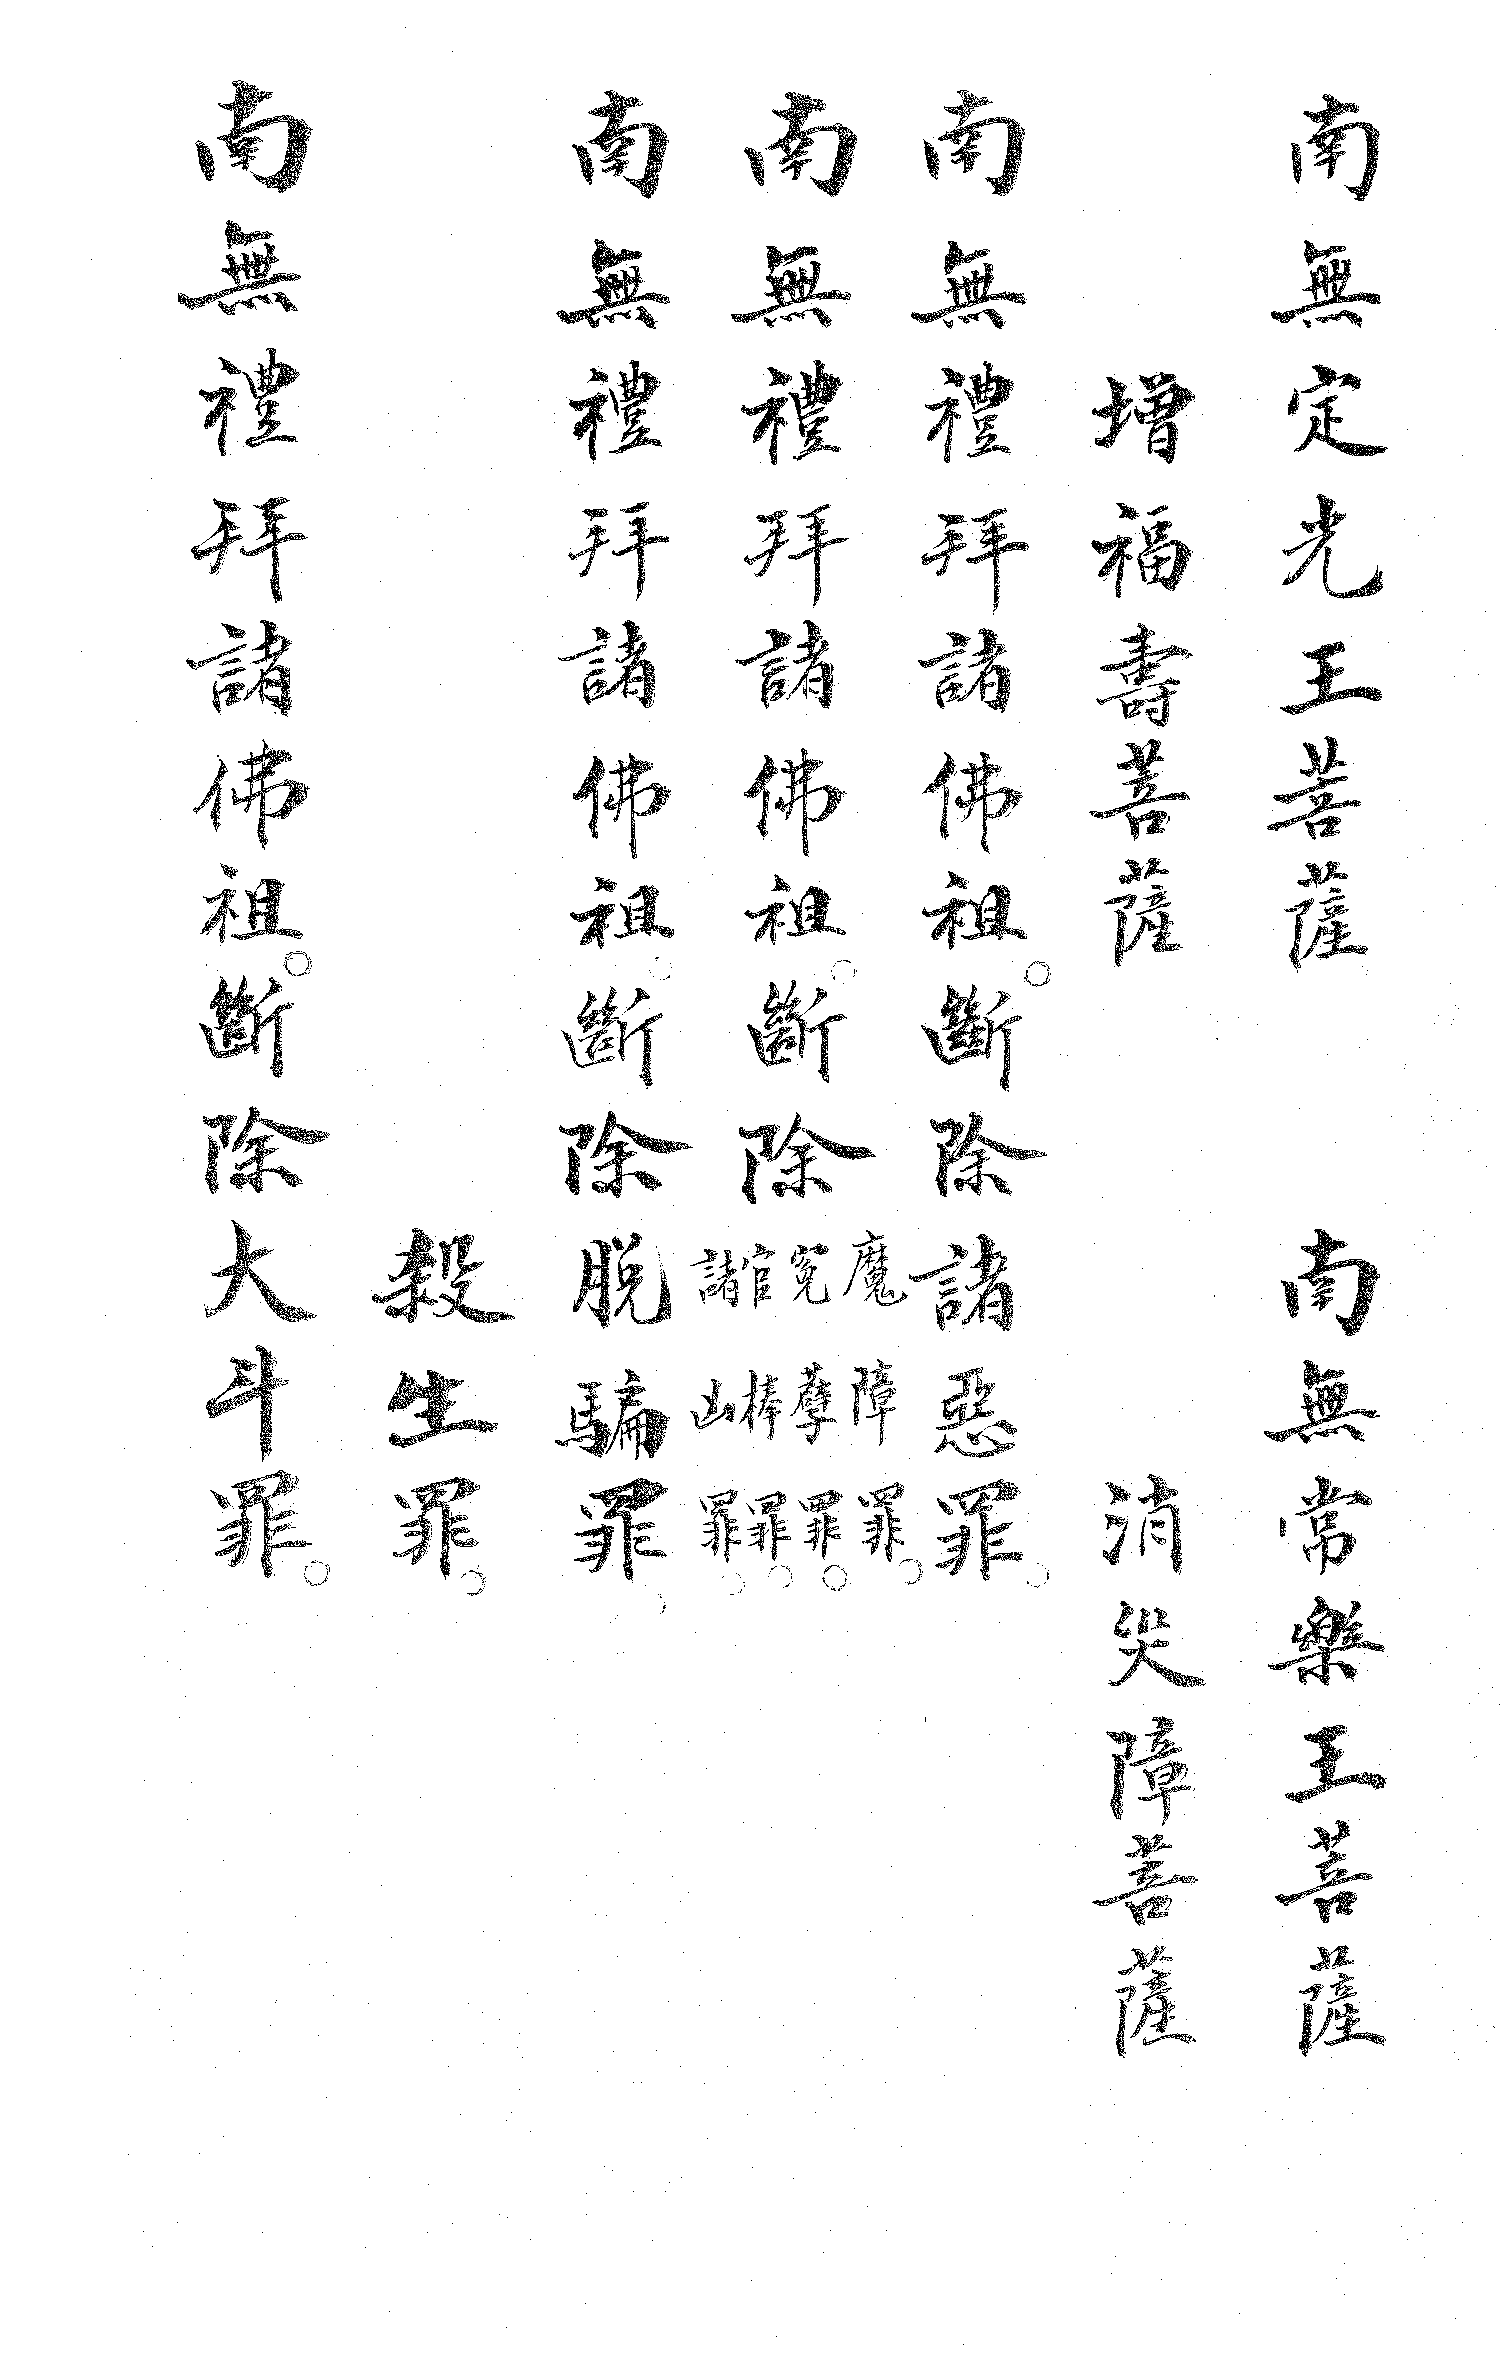 南無定光王菩薩　南無常樂王菩薩
增福壽菩薩　消災障菩薩
南無禮拜諸佛祖。斷除諸惡罪。
南無禮拜諸佛祖。斷除
魔障罪。
冤孽罪。
官棒罪。
諸凶罪。
南無禮拜諸佛祖。斷除脫騙罪。
殺生罪。
南無禮拜諸佛祖。斷除大斗罪。